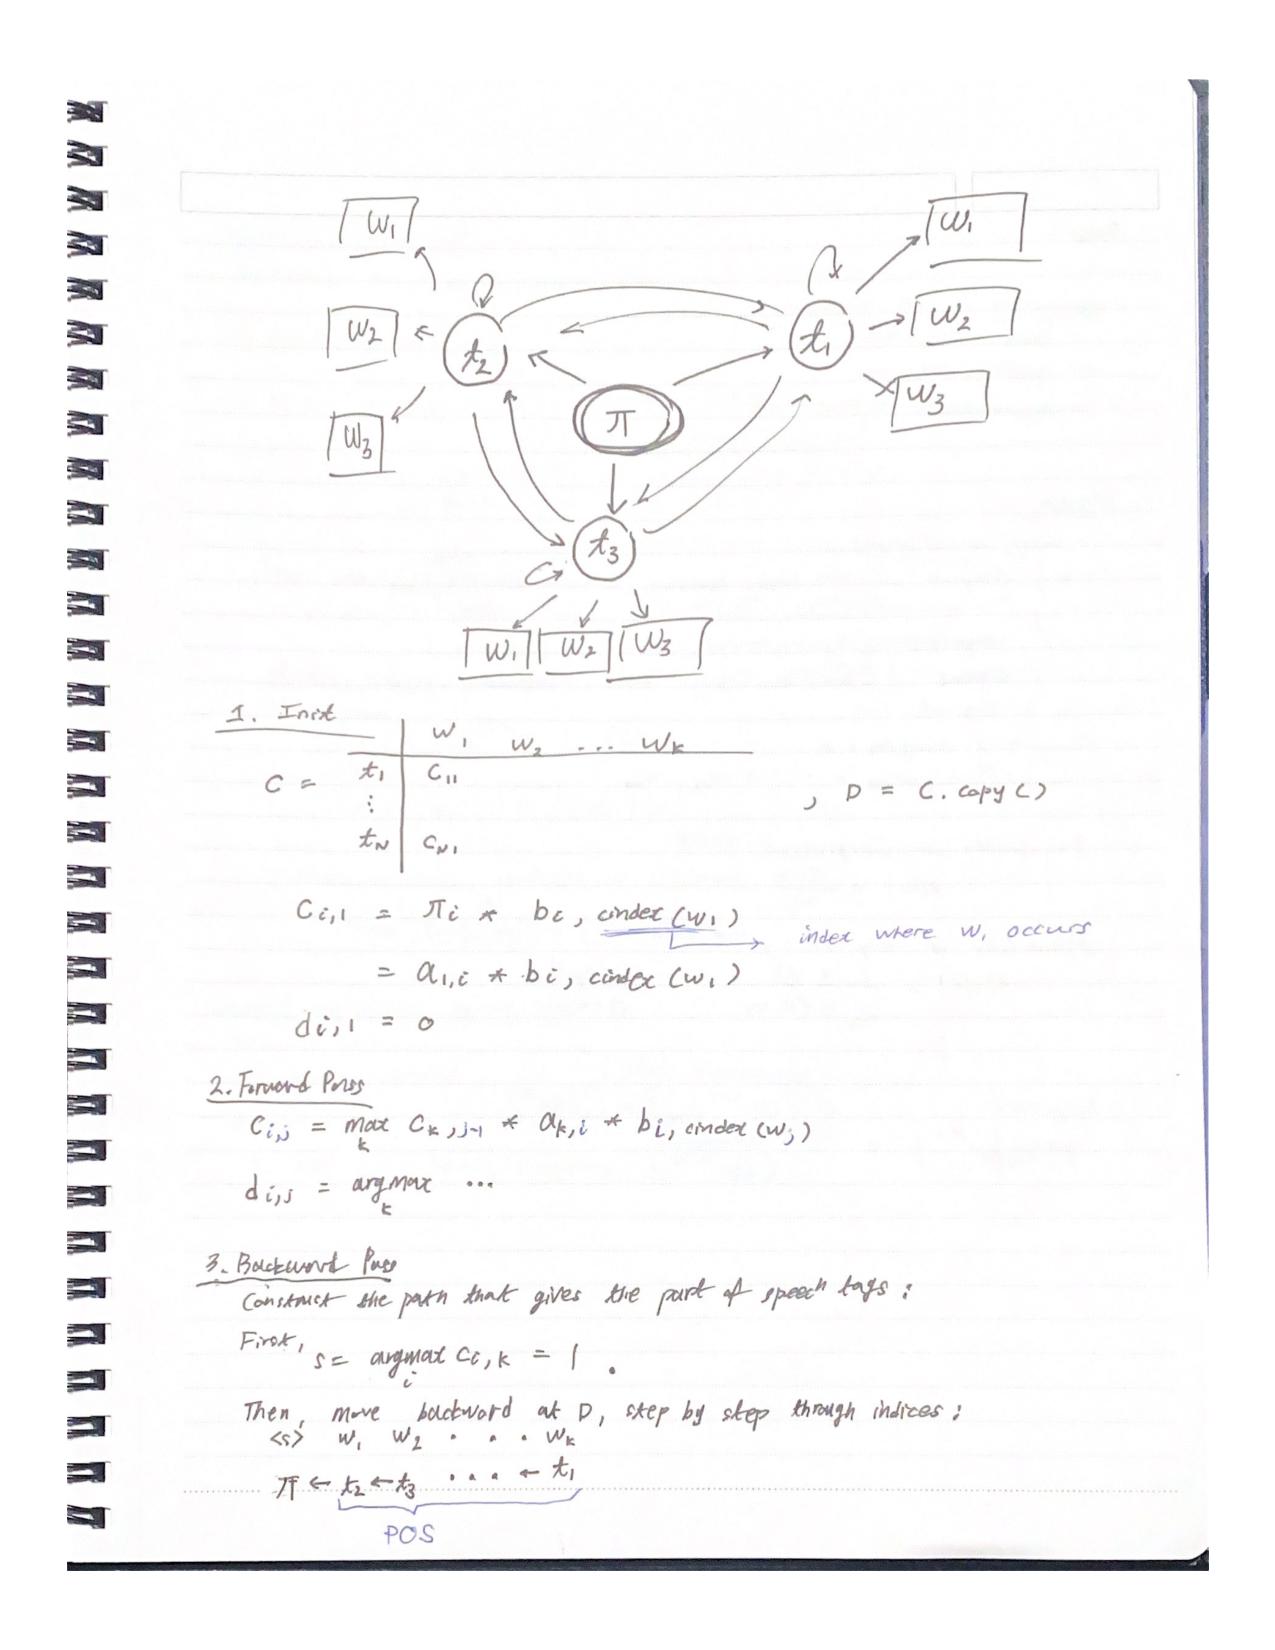 w1
w1
w2
w2
w3
w3
t2
t1
π
t3
w1 w2 w3
1. Init
w1 w2 ... wk
C = t1 c11
⋮
tN cN1
, D = C.copy()
ci,1 = πi * bi, cindex(w1)
index where w1 occurs
= a1,i * bi, cindex(w1)
di,1 = 0
2. Forward Pass
ci,j = max k ck,j-1 * ak,i * bi, cindex(wj)
di,j = argmax k ...
3. Backward Pass
Construct the path that gives the part of speech tags :
First, s = argmax i ci,k = 1 .
Then, move backward at D, step by step through indices :
<s> w1 w2 . . . wk
π ← t2 ← t3 .... ← t1
POS